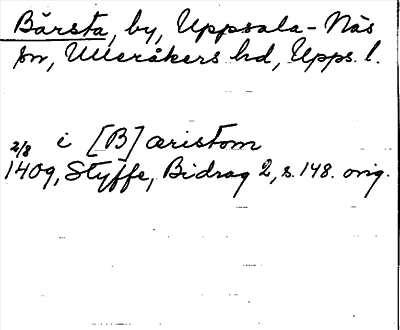 Bärsta, by, Uppsala-Näs
sn, Ulleråkers hd, Upps. l.
i [B]æristom
2/8
1409, Styffe, Bidrag 2, s. 148. orig.